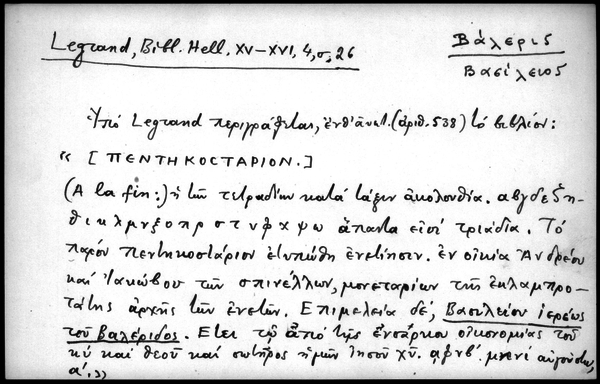 Legrand, Bibl. Hell. XV–XVI, 4, σ. 26
Βάλερις
Βασίλειος
Ὑπό Legrand περιγράφεται, ἔνθ' ἀνωτ. (ἀριθ. 538) τό βιβλίον:
« [ΠΕΝΤΗΚΟCΤΑΡΙΟΝ.]
(A la fin:) ἡ τῶν τετραδίων κατά τάξιν ἀκολουθία. αβγδεζη-
θικλμνξοπρστυφχψω ἅπαντα εἰσί τριάδια. Τό
παρόν πεντηκοστάριον ἐτυπώθη ἐνετίησιν. ἐν οἰκία Ἀνδρέου
καί Ἰακώβου τῶν σπινέλλων, μονεταρίων τῆς ἐκλαμπρο-
τάτης ἀρχῆς τῶν ἐνετῶν. Επιμελεία δέ, Βασιλείου ἱερέως
τοῦ βαλέριδος. Ετει τῷ ἀπό τῆς ἐνσάρκου οἰκονομίας τοῦ
κυ καί θεοῦ καί σωτῆρος ἡμῶν Ἰησοῦ χῦ. αφνβ΄. μηνί αὐγούστω,
α΄. »